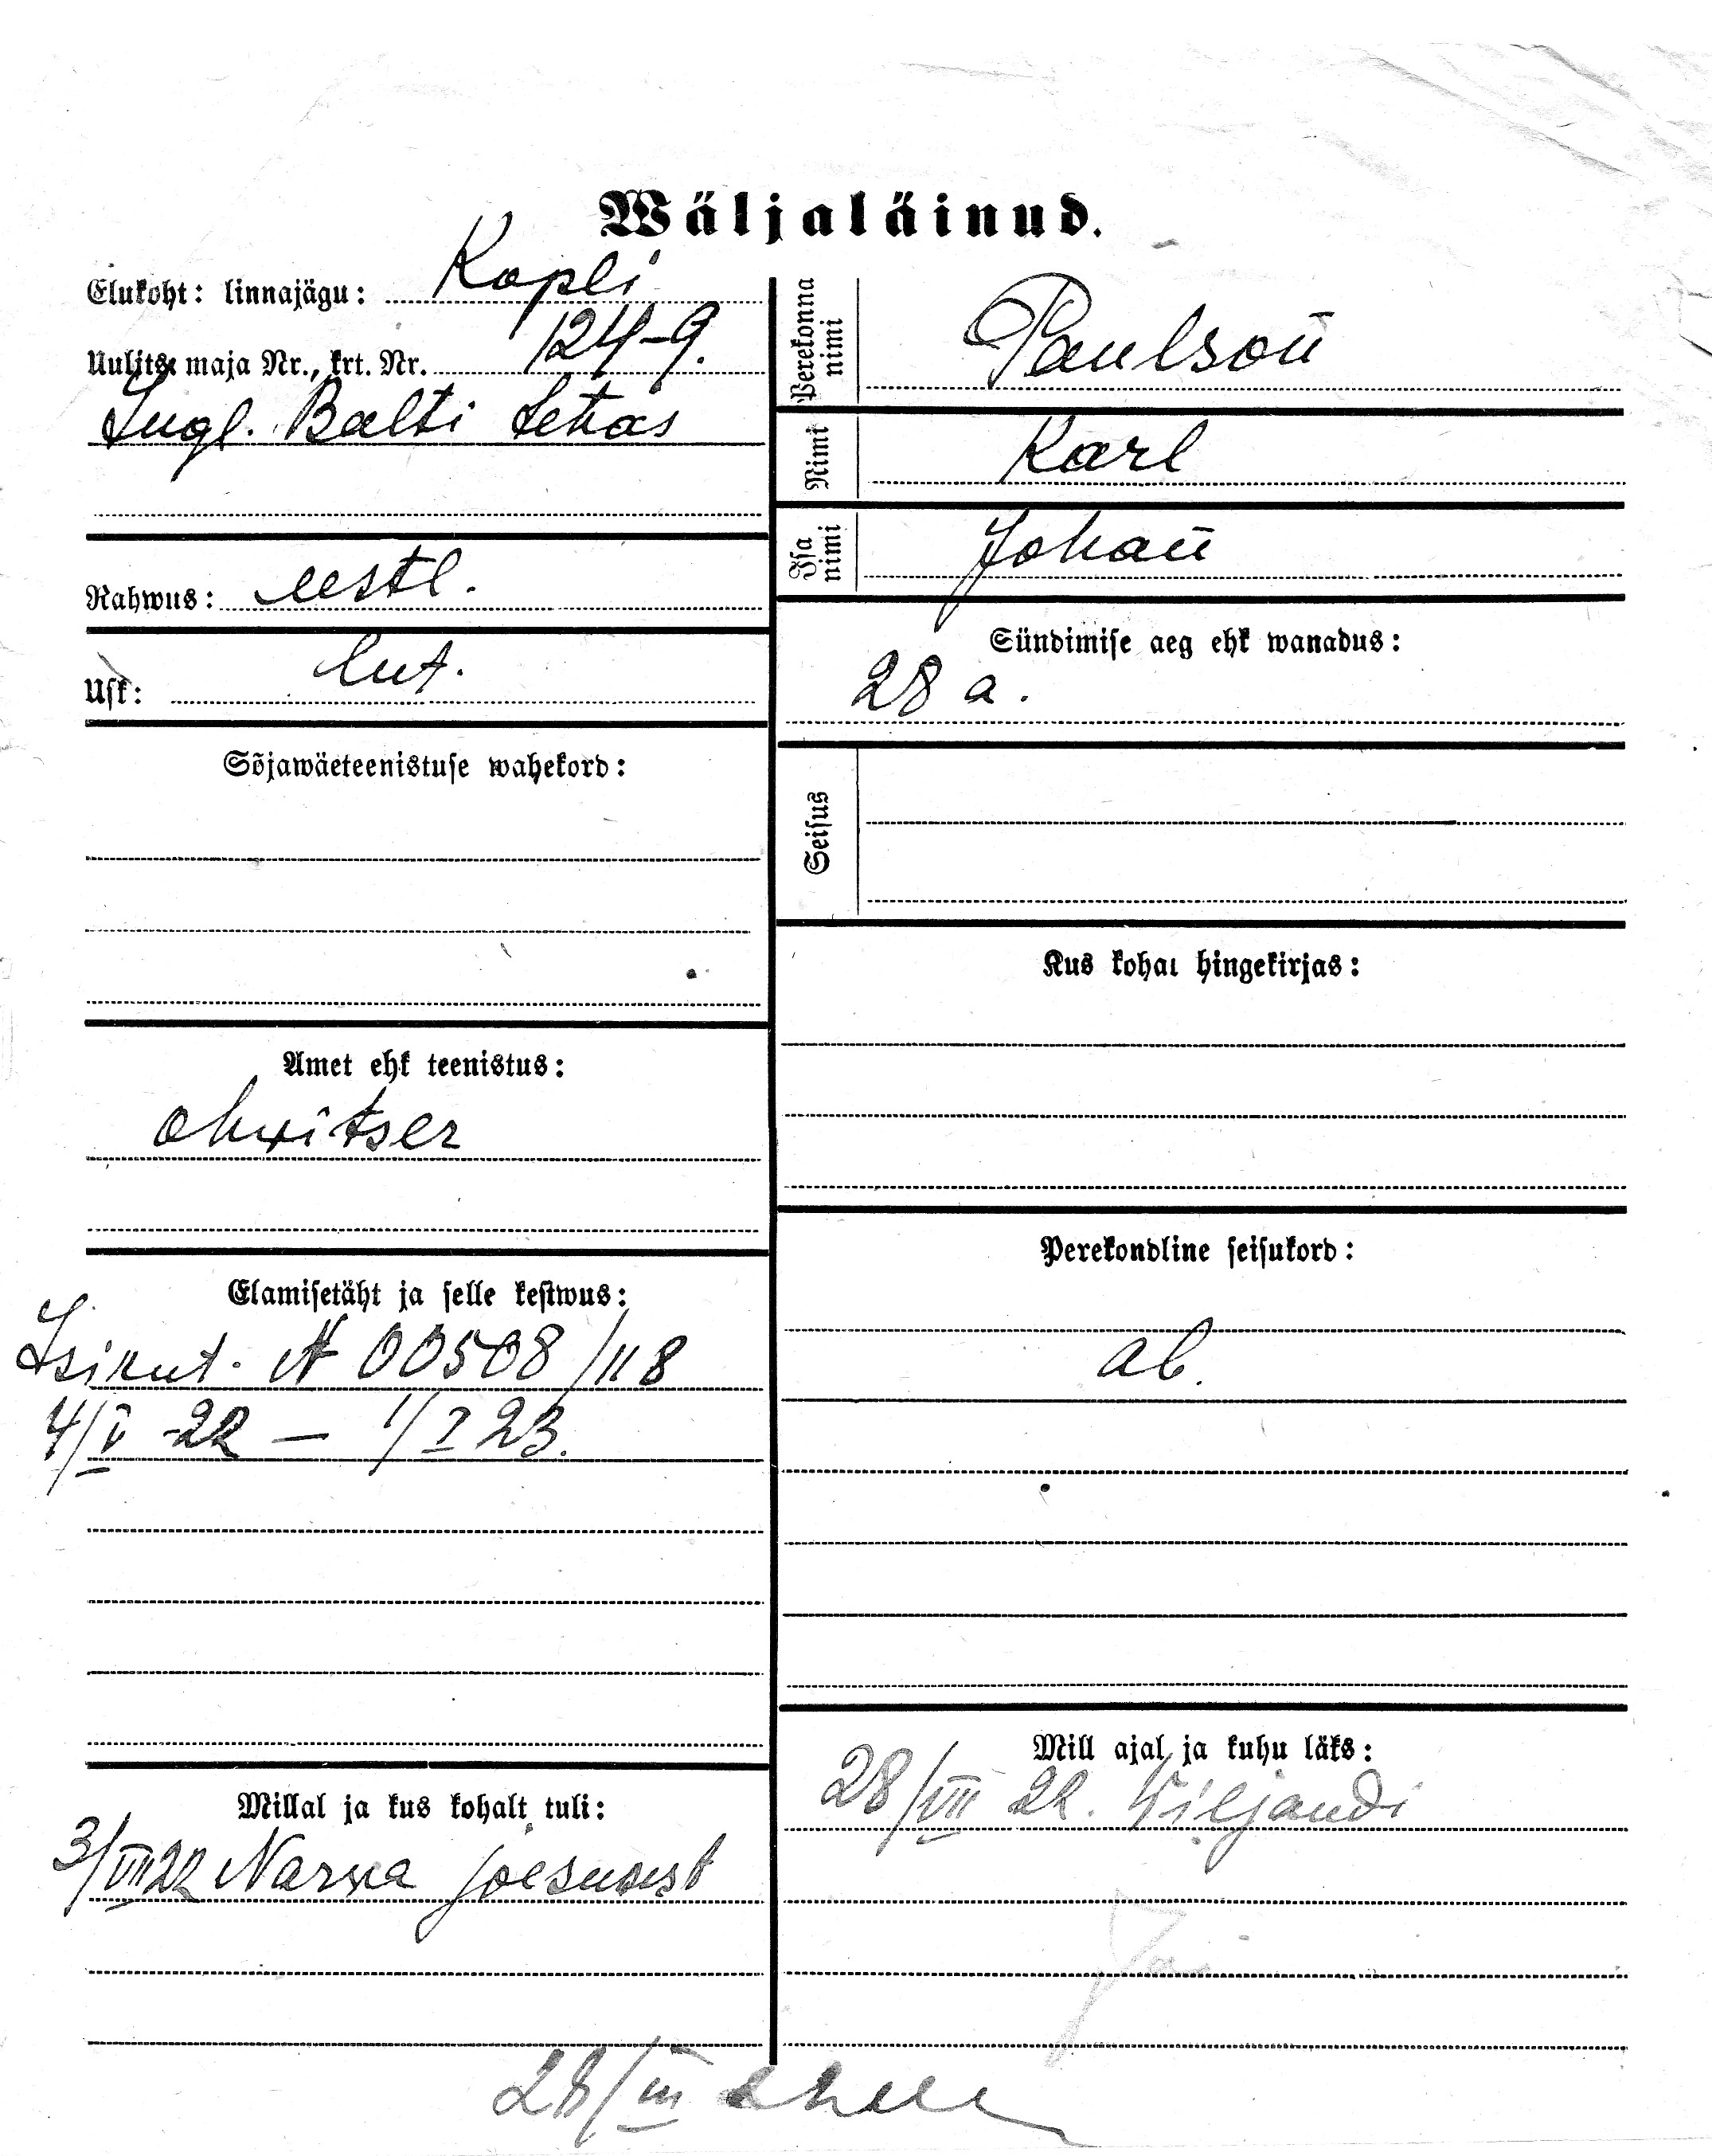 Wäljaläinud.
Elukoht: linnajägu: Kopli
Uulits, maja Nr., krt. Nr. 124-9.
Ingl. Balti tehas
Rahwus: eestl.
Usk: lut.
Sõjawäeteenistuse wahekord:
Amet ehk teenistus:
ohwitser
Elamisetäht ja selle kestwus:
Isikut. N 00508/118
4/V -22 — 1/I 23.
Millal ja kus kohalt tuli:
3/VII 22 Narwa jõesuust
Perekonna nimi Paulson̄
Nimi Karl
Isa nimi Johan̄
Sündimise aeg ehk wanadus:
28 a.
Seisus
Kus kohal hingekirjas:
Perekondline seisukord:
ab.
Mill ajal ja kuhu läks:
28/VIII 22. Wiljandi